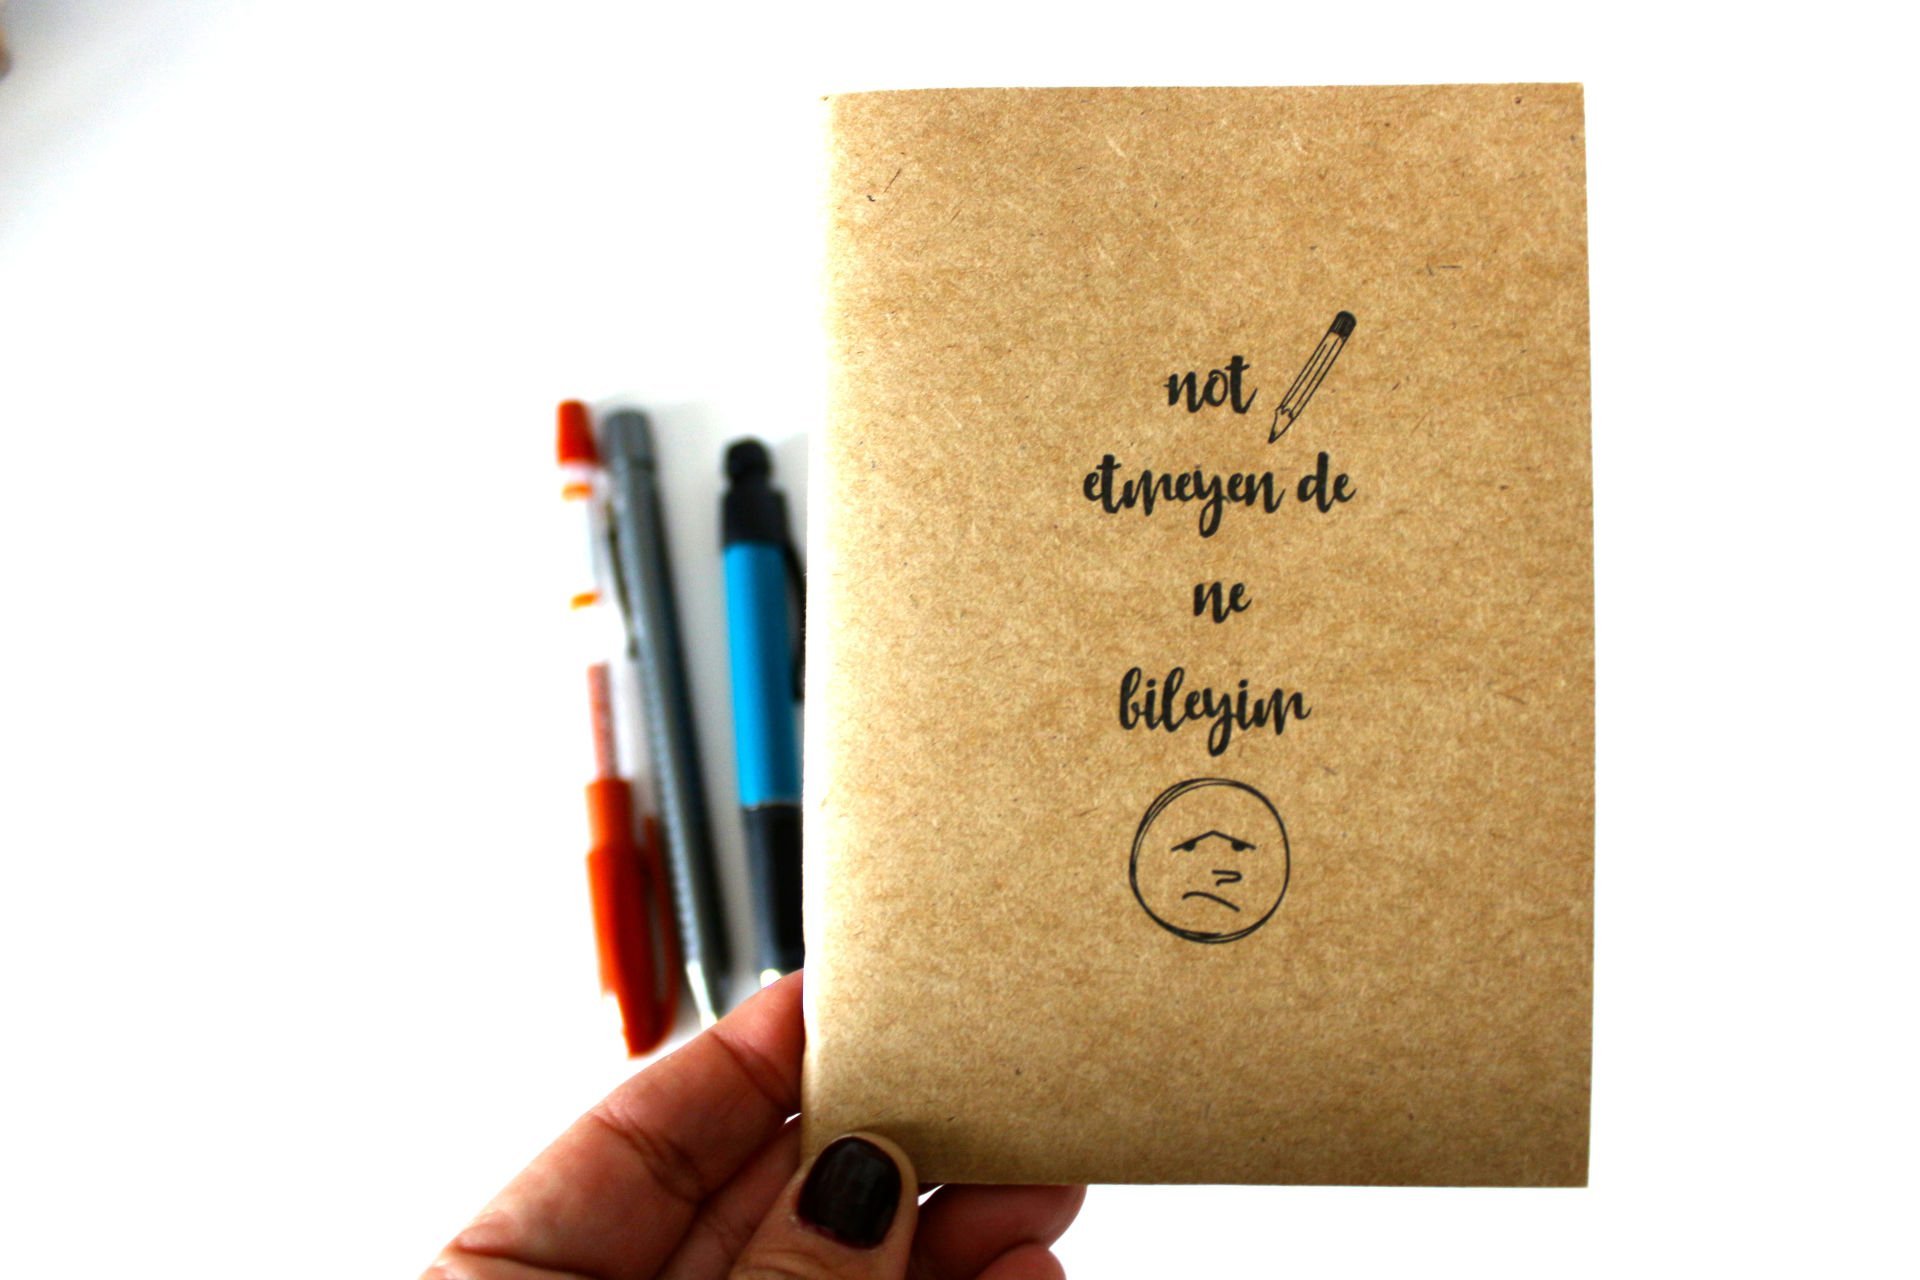 not
etmeyen de
ne
bileyim